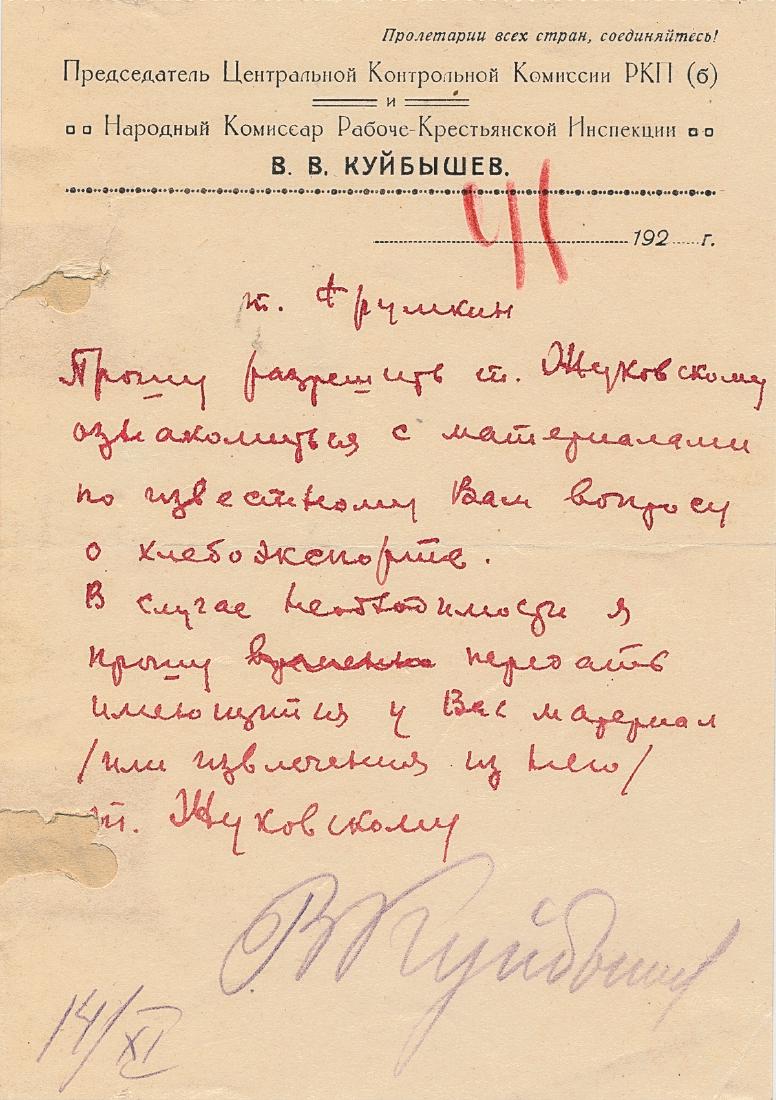 Пролетарии всех стран, соединяйтесь!
Председатель Центральной Контрольной Комиссии РКП (б)
и
Народный Комиссар Рабоче-Крестьянской Инспекции
В. В. КУЙБЫШЕВ.
192 г.
т. Фрумкин
Прошу разрешить т. Жуковскому
ознакомиться с материалами
по известному Вам вопросу
о хлебоэкспорте.
В случае необходимости я
прошу временно передать
имеющийся у Вас материал
/или извлечения из него/
т. Жуковскому
В Куйбышев
14/XI